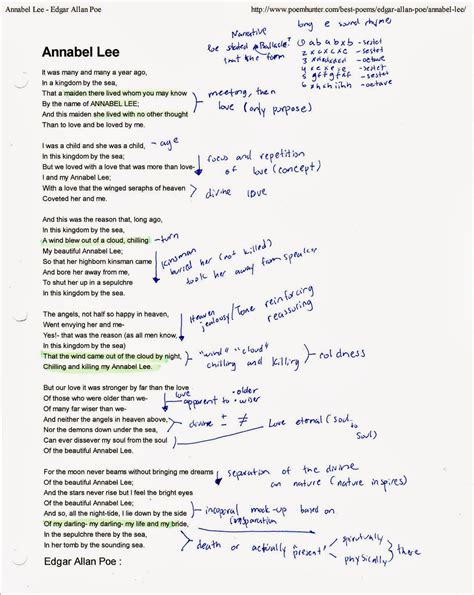 Annabel Lee - Edgar Allan Poe
http://www.poemhunter.com/best-poems/edgar-allan-poe/annabel-lee/
Annabel Lee
Narrative
long e sound rhyme
Poe stated "Ballade"
isn't the form
① a b a b x b - sestet
2 x c x c x c - sestet
octave
sestet
octave
6 octave
It was many and many a year ago,
In a kingdom by the sea,
That a maiden there lived whom you may know
By the name of ANNABEL LEE;
And this maiden she lived with no other thought
Than to love and be loved by me.
meeting, then
love (only purpose)
I was a child and she was a child,
- age
In this kingdom by the sea;
But we loved with a love that was more than love-
I and my Annabel Lee;
With a love that the winged seraphs of heaven
Coveted her and me.
focus and repetition
of love (concept)
divine love
And this was the reason that, long ago,
In this kingdom by the sea,
A wind blew out of a cloud, chilling
- turn
My beautiful Annabel Lee;
So that her highborn kinsman came
And bore her away from me,
To shut her up in a sepulchre
In this kingdom by the sea.
Kinsman
buried her (not killed)
took her away from speaker
The angels, not half so happy in heaven,
Went envying her and me-
Yes!- that was the reason (as all men know,
In this kingdom by the sea)
That the wind came out of the cloud by night,
Chilling and killing my Annabel Lee.
Heaven
jealousy/Tone reinforcing
reassuring
"wind" "cloud"
chilling and killing
coldness
But our love it was stronger by far than the love
Of those who were older than we-
Of many far wiser than we-
And neither the angels in heaven above,
Nor the demons down under the sea,
Can ever dissever my soul from the soul
Of the beautiful Annabel Lee.
love
apparent to
• older
• wiser
divine ± ≠
Love eternal (soul
to
soul)
For the moon never beams without bringing me dreams
Of the beautiful Annabel Lee;
And the stars never rise but I feel the bright eyes
Of the beautiful Annabel Lee;
And so, all the night-tide, I lie down by the side
Of my darling- my darling- my life and my bride,
In the sepulchre there by the sea,
In her tomb by the sounding sea.
separation of the divine
an nature (nature inspires)
mock-up based on
death or actually "present"
spiritually
physically
there
Edgar Allan Poe :